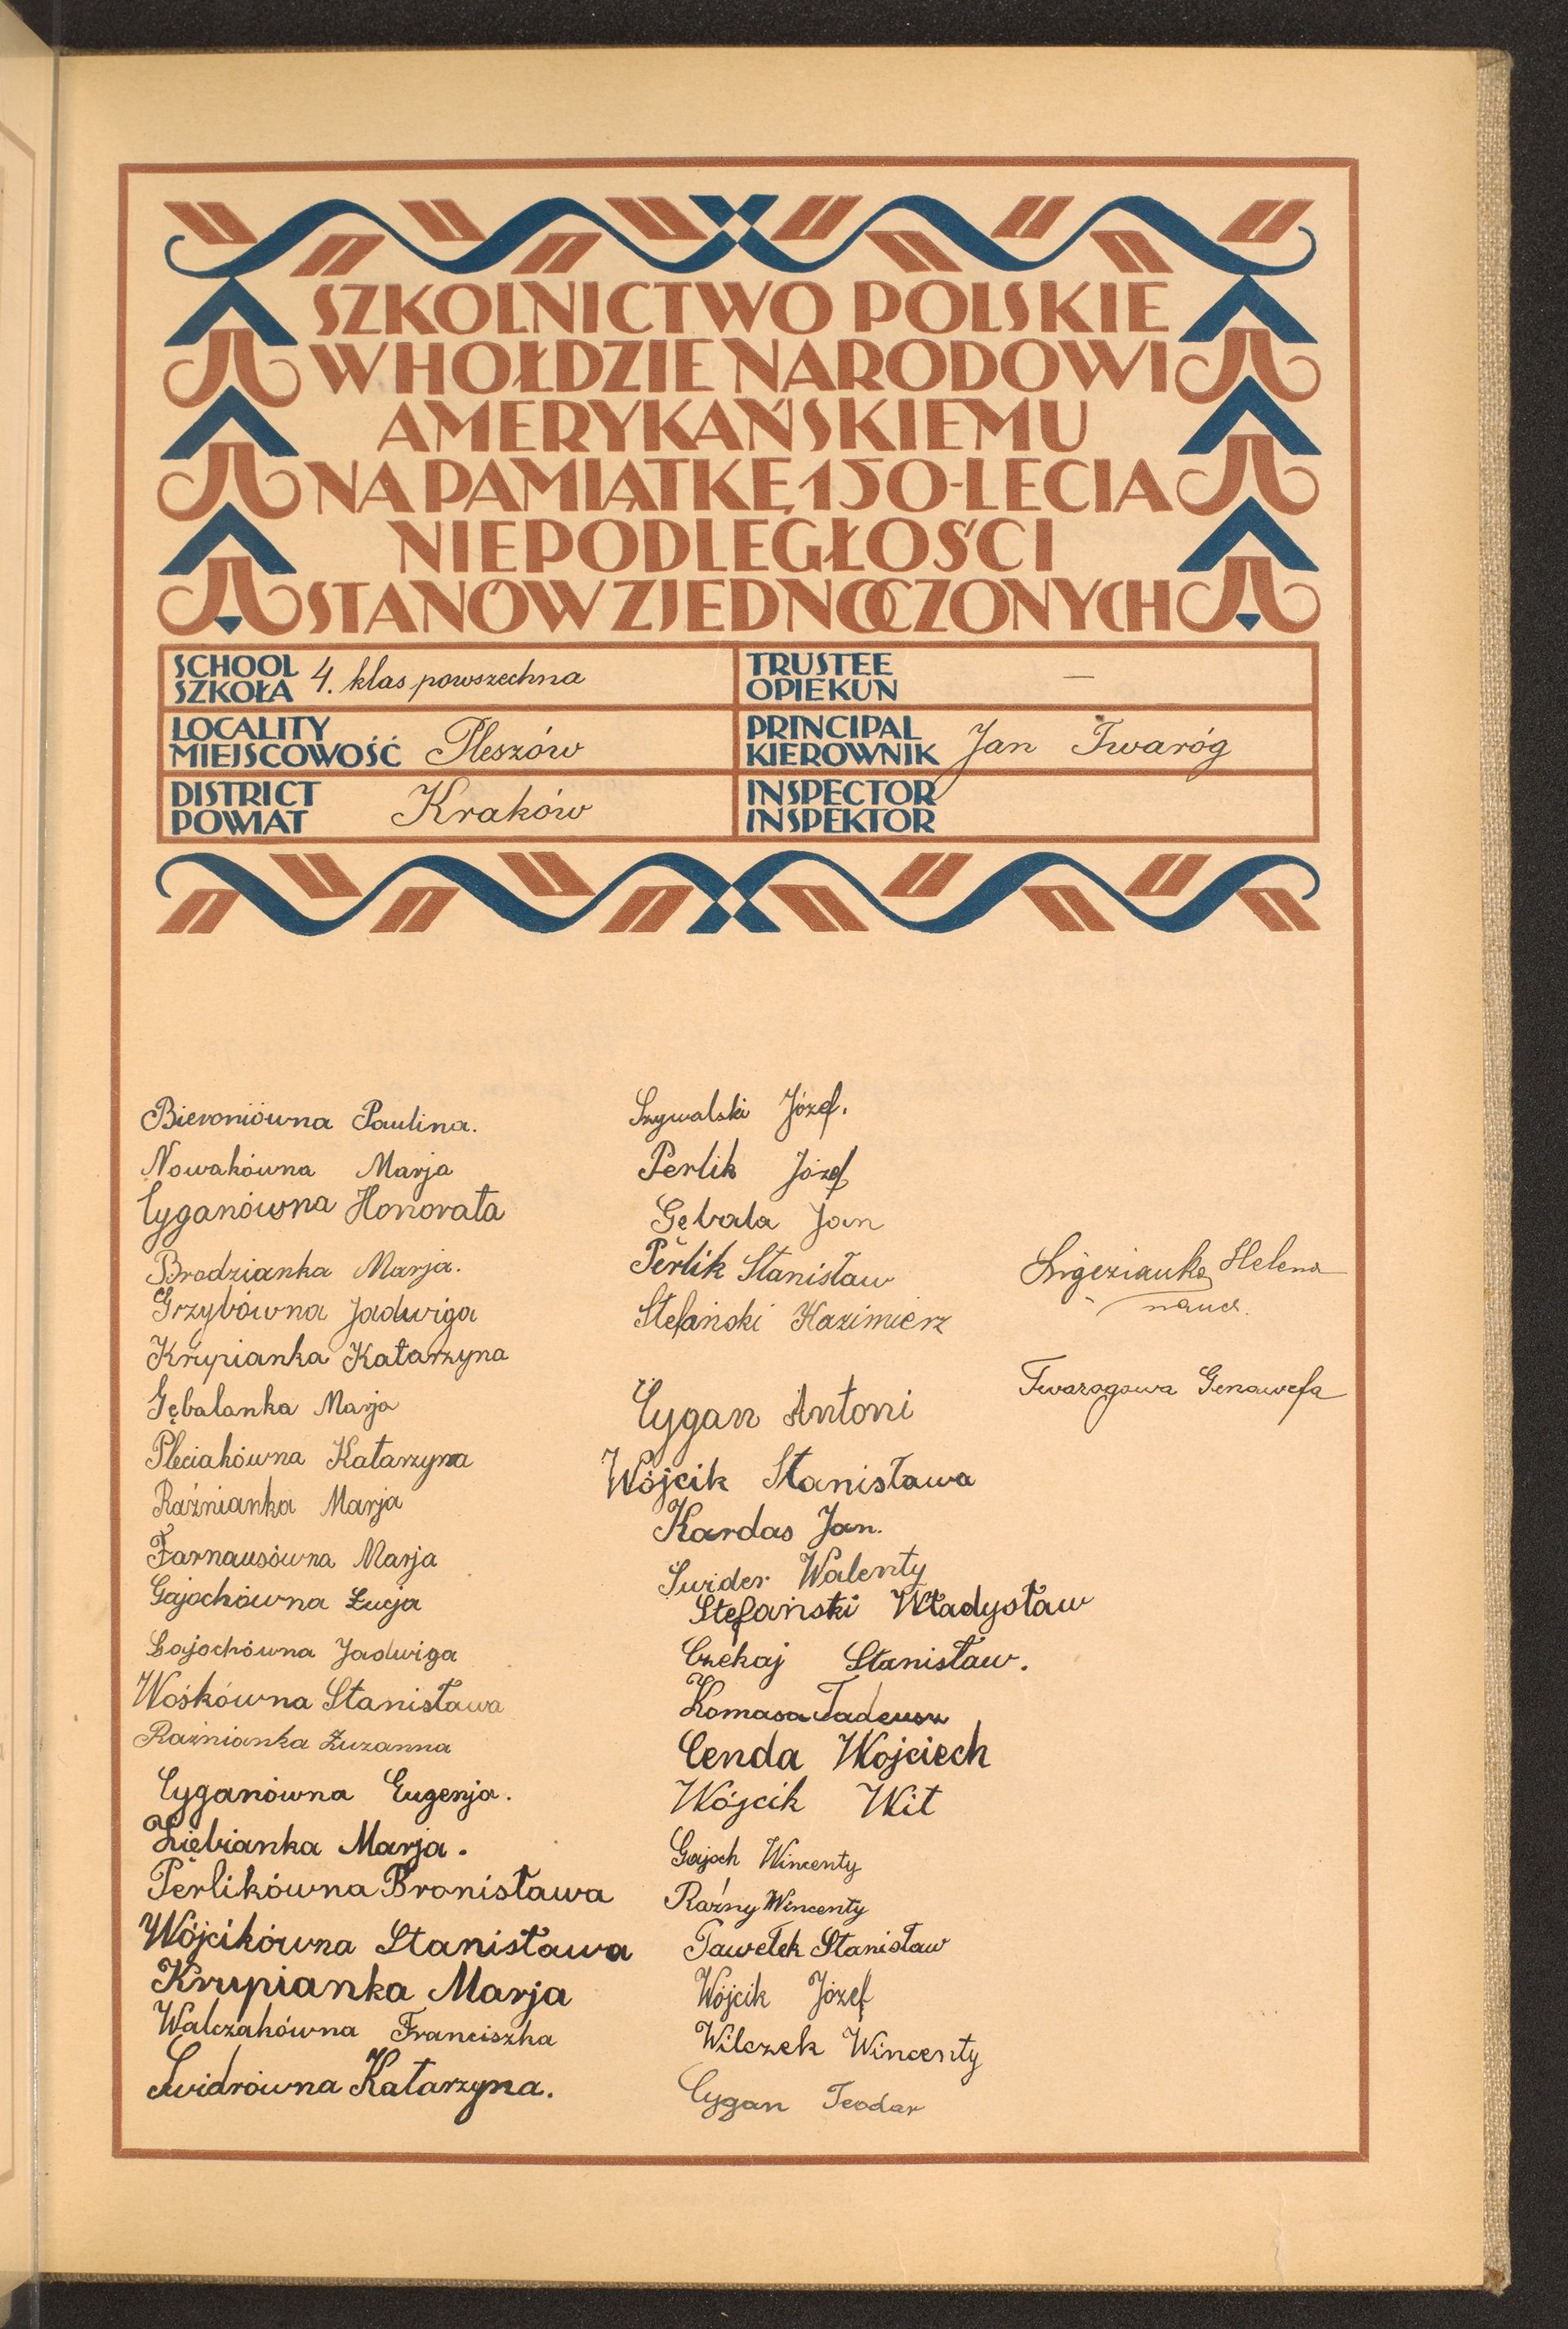 SZKOLNICTWO POLSKIE
W HOŁDZIE NARODOWI
AMERYKAŃSKIEMU
NA PAMIĄTKĘ 150-LECIA
NIEPODLEGŁOŚCI
STANÓW ZJEDNOCZONYCH
SCHOOL
SZKOŁA 4. klas powszechna
TRUSTEE
OPIEKUN —
LOCALITY
MIEJSCOWOŚĆ Pleszów
PRINCIPAL
KIEROWNIK Jan Twaróg
DISTRICT
POWIAT Kraków
INSPECTOR
INSPEKTOR
Bieroniówna Paulina.
Nowakówna Marja
Cyganówna Honorata
Brodzianka Marja.
Grzybówna Jadwiga
Krupianka Katarzyna
Gębalanka Marja
Pleciakówna Katarzyna
Raźnianka Marja
Farnausówna Marja
Gajochówna Łucja
Gajochówna Jadwiga
Wośkówna Stanisława
Raźnianka Zuzanna
Cyganówna Eugenja.
Ziębianka Marja.
Perlikówna Bronisława
Wójcikówna Stanisława
Krupianka Marja
Walczakówna Franciszka
Świdrówna Katarzyna.
Józef.
Perlik Józef
Gębala Jan
Perlik Stanisław
Stefański Kazimierz
Cygan Antoni
Wójcik Stanisława
Kardas Jan.
Świder Walenty
Stefański Władysław
Czekaj Stanisław.
Komasa Tadeusz
Cenda Wojciech
Wójcik Wit
Gajoch Wincenty
Raźny Wincenty
Pawełek Stanisław
Wójcik Józef
Wilczek Wincenty
Cygan Teodor
Helena
naucz.
Twarogowa Genowefa